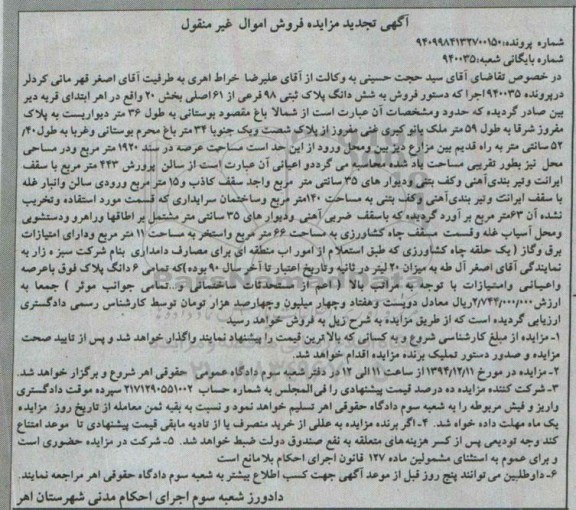 آگهی تجدید مزایده فروش اموال غیر منقول
شماره پرونده: ۹۴۰۹۹۸۴۱۳۲۷۰۰۱۵۰
شماره بایگانی شعبه: ۹۴۰۰۳۵
در خصوص تقاضای آقای سید حجت حسینی به وکالت از آقای علیرضا خراط اهری به طرفیت آقای اصغر قهر مانی کردلر
درپرونده ۹۴۰۰۳۵ اجرا که دستور فروش به شش دانگ پلاک ثبتی ۹۸ فرعی از ۶۱ اصلی بخش ۲۰ واقع در اهر ابتدای قریه دیز
بین صادر گردیده که حدود ومشخصات آن عبارت است از شمالا باغ مقصود بوستانی به طول ۳۶ متر دیواریست به پلاک
مفروز شرقا به طول ۵۹ متر ملک بانو کبری غنی مفروز از پلاک شصت ویک جنوبا ۳۴ متر باغ محرم بوستانی وغربا به طول ۴۰/
۵۲ سانتی متر به راه قدیم بین مزارع دیز بین ومحل ورود از این حد است مساحت عرصه در سند ۱۹۲۰ متر مربع ودر مساحی
محل نیز بطور تقریبی مساحت یاد شده محاسبه می گرددو اعیانی آن عبارت است از سالن پرورش ۴۴۳ متر مربع با سقف
ایرانت وتیر بندی آهنی وکف بتنی ودیوار های ۳۵ سانتی متر مربع واجد سقف کاذب و۱۵ متر مربع ورودی سالن وانبار غله
با سقف ایرانت وتیر بندی آهنی وکف بتنی به مساحت ۱۴۰ متر مربع وساختمان سرایداری که قسمت مورد استفاده وتخریب
نشده آن ۶۳ متر مربع بر آورد گردیده که باسقف ضربی آهنی ودیوار های ۳۵ سانتی متر مشتمل بر اطاقها وراهرو ودستشویی
ومحل آسیاب غله وقسمت مسقف چاه کشاورزی به مساحت ۶۶ متر مربع واستخر به مساحت ۱۱ متر مربع ودارای امتیازات
برق وگاز ( یک حلقه چاه کشاورزی که طبق استعلام از امور اب منطقه ای برای مصارف دامداری بنام شرکت سبزه زار به
نمایندگی آقای اصغر آل طه به میزان ۲۰ لیتر در ثانیه وتاریخ اعتبار تا آخر سال ۹۰ بوده )که تمامی ۶ دانگ پلاک فوق باعرصه
واعیانی وامتیازات با توجه به مراتب بالا (قدمت مستحدثات ساختمانی و تمامی جوانب موثر ) جمعا به
ارزش ۲/۷۴۴/۰۰۰/۰۰۰ ریال معادل دویست وهفتاد وچهار میلیون وچهارصد هزار تومان توسط کارشناس رسمی دادگستری
ارزیابی گردیده است که از طریق مزایده به شرح زیل به فروش خواهد رسید
۱-مزایده از مبلغ کارشناسی شروع و به کسانی که بالاترین قیمت را پیشنهاد نمایند واگذار خواهد شد و پس از تایید صحت
مزایده و صدور دستور تملیک برنده مزایده اقدام خواهد شد.
۲- مزایده در مورخ ۱۳۹۴/۱۲/۱۱ از ساعت ۱۱ الی ۱۲ در دفتر شعبه سوم دادگاه عمومی حقوقی اهر شروع و برگزار خواهد شد.
۳- شرکت کننده مزایده ده درصد قیمت پیشنهادی را فی المجلس به شماره حساب ۲۱۷۱۲۹۰۵۵۱۰۰۲ سپرده موقت دادگستری
واریز و فیش مربوطه را به شعبه سوم دادگاه حقوقی اهر تسلیم خواهد نمود و نسبت به بقیه ثمن معامله از تاریخ روز مزایده
یک ماه مهلت داده خواه شد. ۴- اگر برنده مزایده به عللی از خرید منصرف یا از تادیه مابقی قیمت پیشنهادی تا موعد امتناع
کند وجه تودیعی پس از کسر هزینه های متعلقه به نفع صندوق دولت ضبط خواهد شد. ۵- شرکت در مزایده حضوری است
و برای عموم به استثنای مشمولین ماده ۱۲۷ قانون اجرای احکام بلامانع است
۶- داوطلبین می توانند پنج روز قبل از موعد آگهی جهت کسب اطلاع بیشتر به شعبه سوم دادگاه حقوقی اهر مراجعه نمایند.
دادورز شعبه سوم اجرای احکام مدنی شهرستان اهر